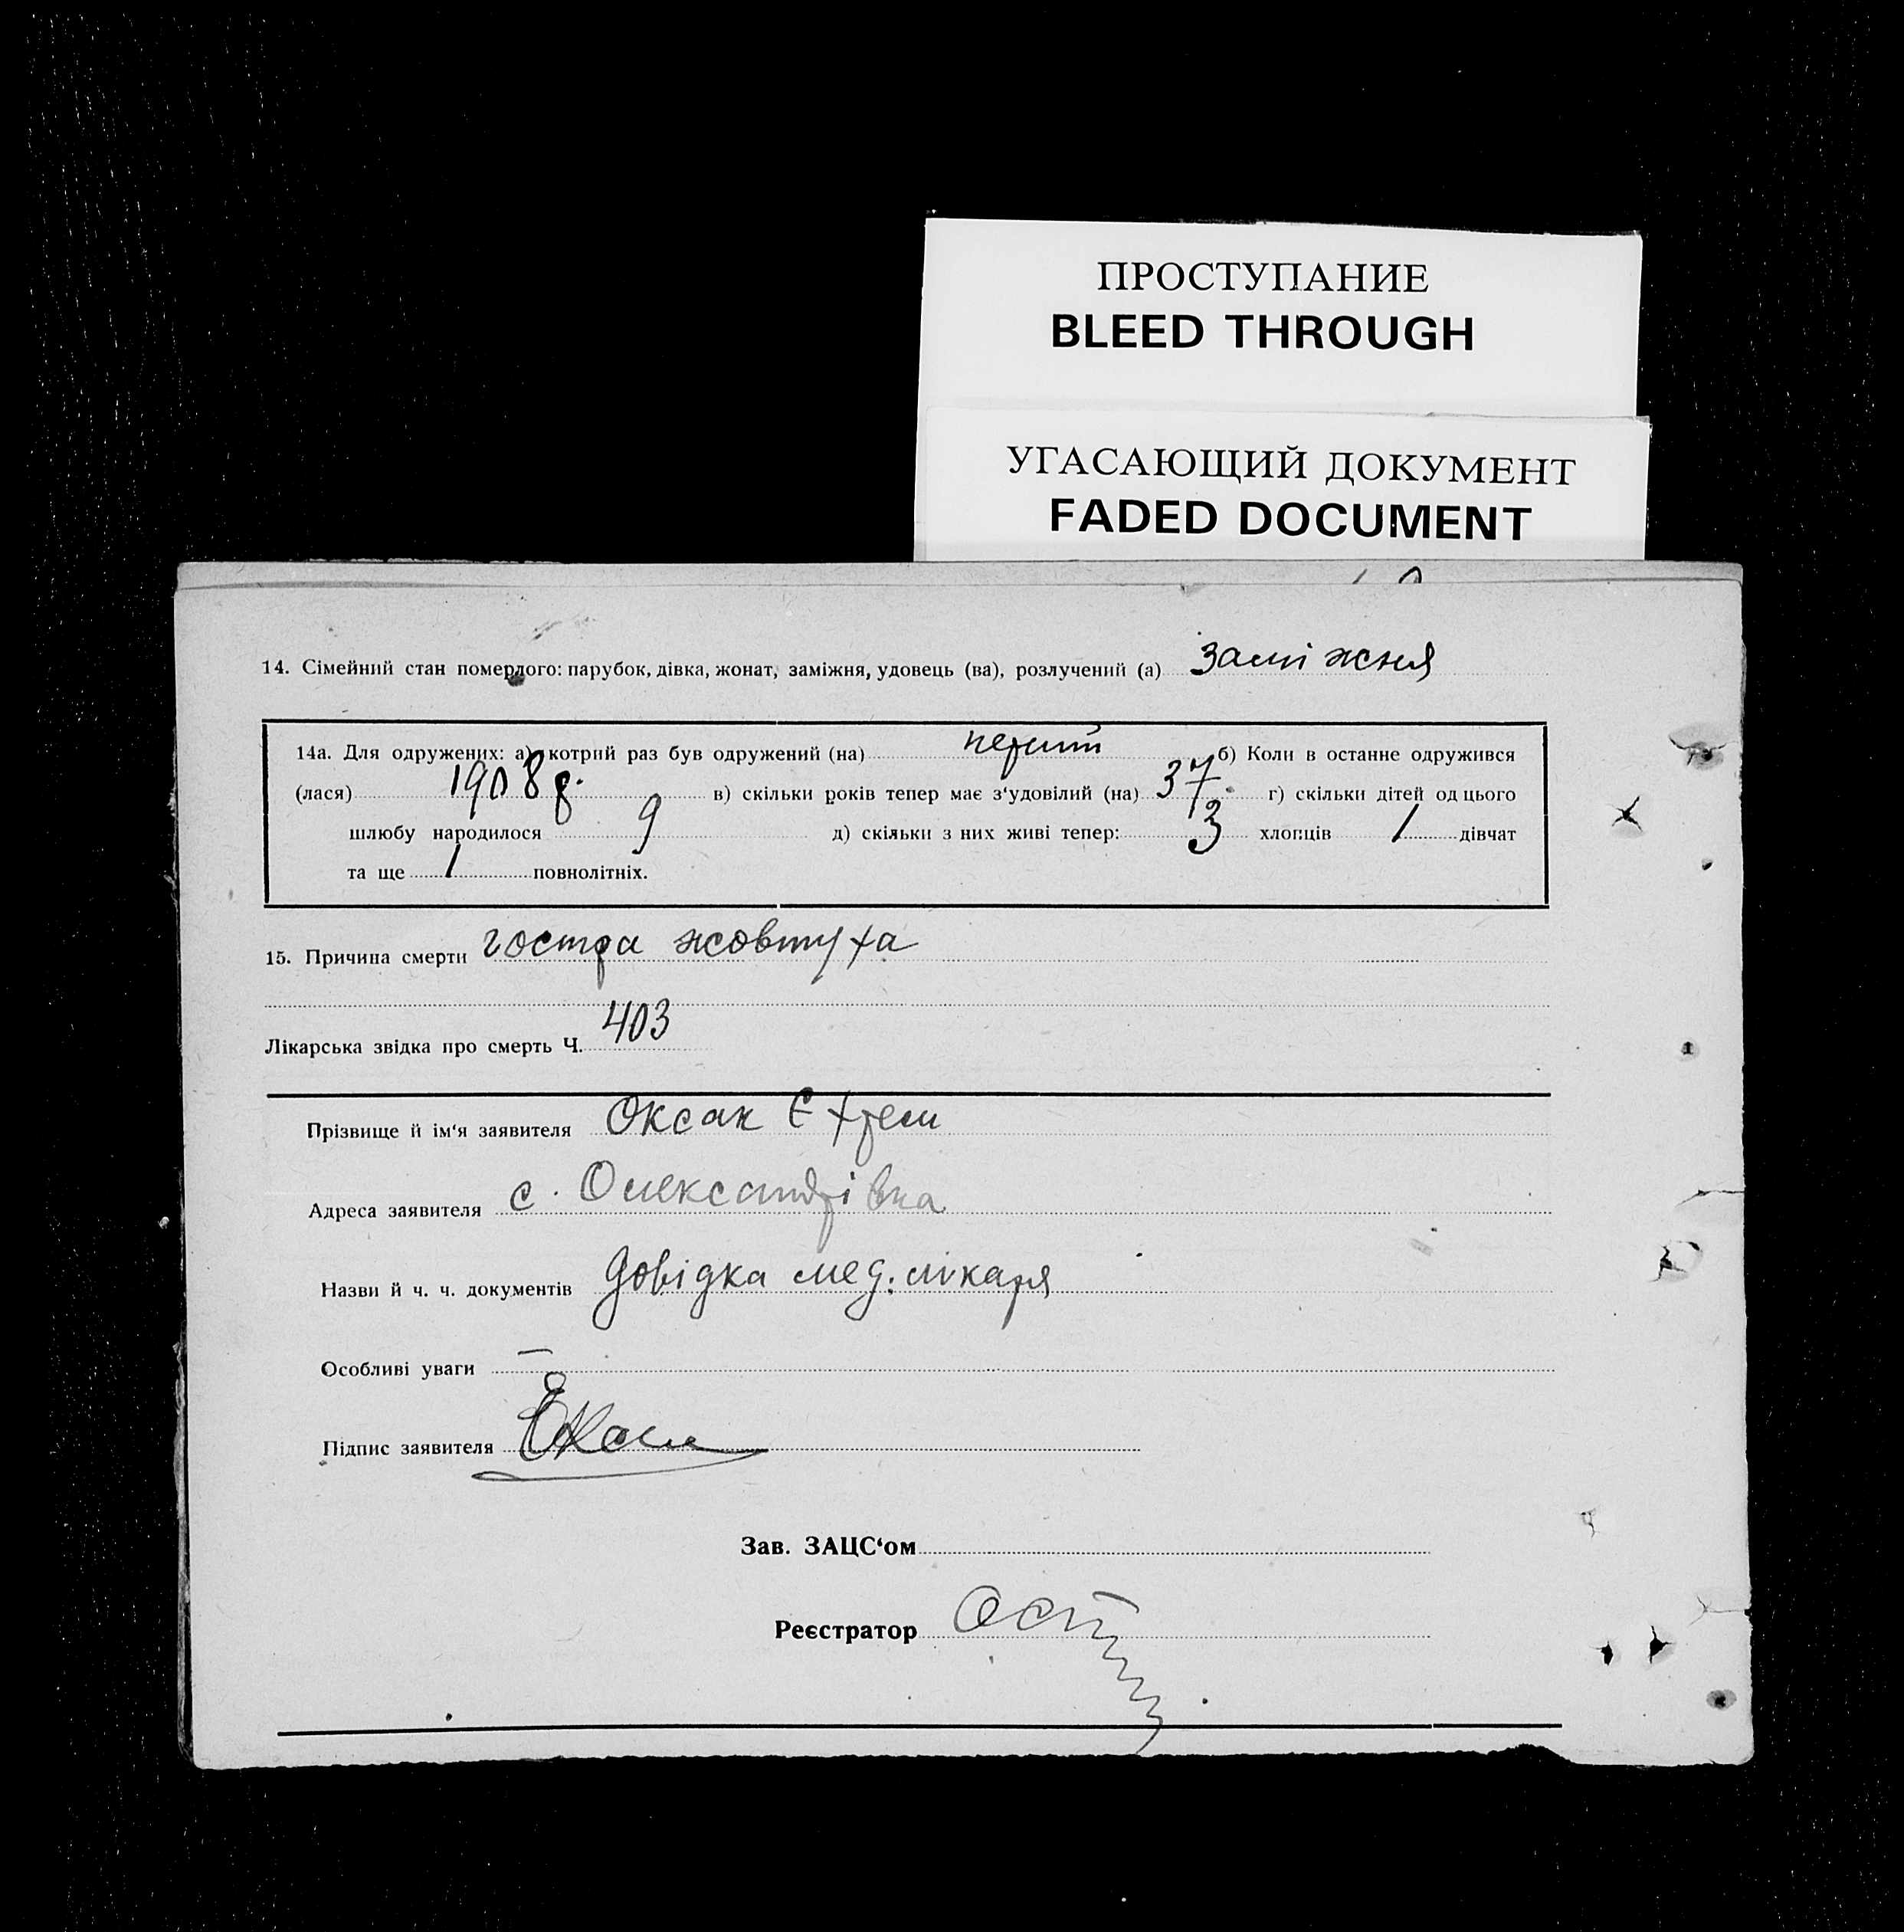 ПРОСТУПАНИЕ
BLEED THROUGH
УГАСАЮЩИЙ ДОКУМЕНТ
FADED DOCUMENT
14. Сімейний стан померлого: парубок, дівка, жонат, заміжня, удовець (ва), розлучений (а) заміжня
14а. Для одружених: а) котрий раз був одружений (на) перший б) Коли в останне одружився
(лася) 1908 р. в) скільки років тепер має з‘удовілий (на) 37. г) скільки дітей од цього
шлюбу народилося 9 д) скільки з них живі тепер: 3 хлопців 1 дівчат
та ще 1 повнолітніх.
15. Причина смерти гостра жовтуха
Лікарська звідка про смерть Ч. 403
Прізвище й ім‘я заявителя Оксак Єхрем
Адреса заявителя с. Олександрівка
Назви й ч. ч. документів Довідка мед. лікаря
Особливі уваги —
Підпис заявителя
Зав. ЗАЦС‘ом
Реєстратор